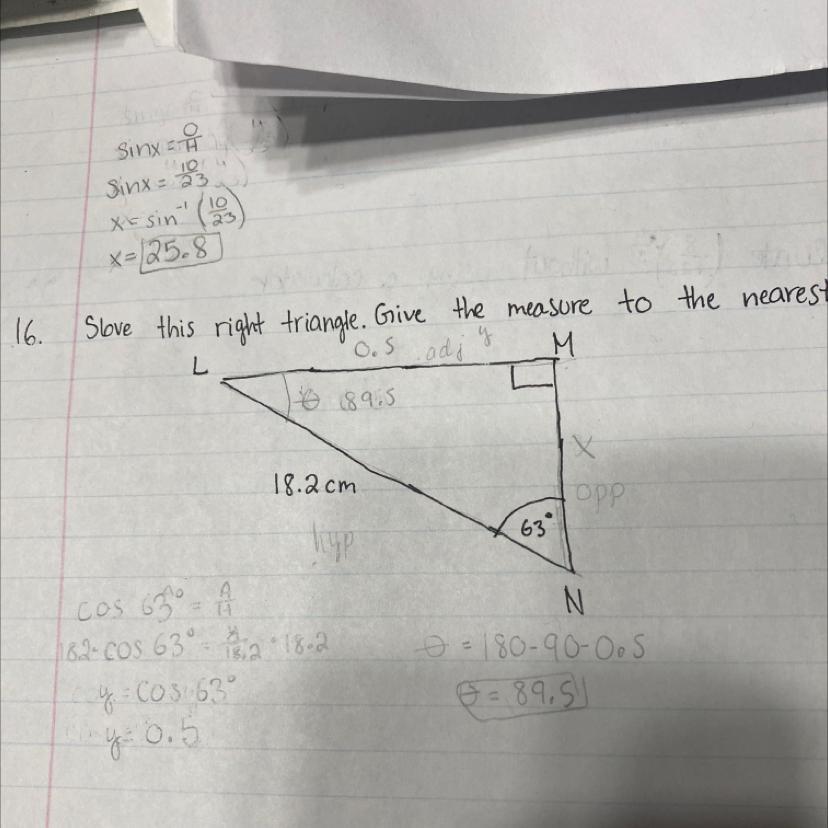 sinx = O/H
sinx = 10/23
x = sin⁻¹ (10/23)
x = 25.8
16. Slove this right triangle. Give the measure to the nearest
0.5 adj y
L
M
θ 89.5
x
18.2cm
opp
63°
hyp
N
cos 63° = A/H
18.2 · cos 63° = y/18.2 · 18.2
y = cos 63°
y = 0.5
θ = 180-90-0.5
θ = 89.5